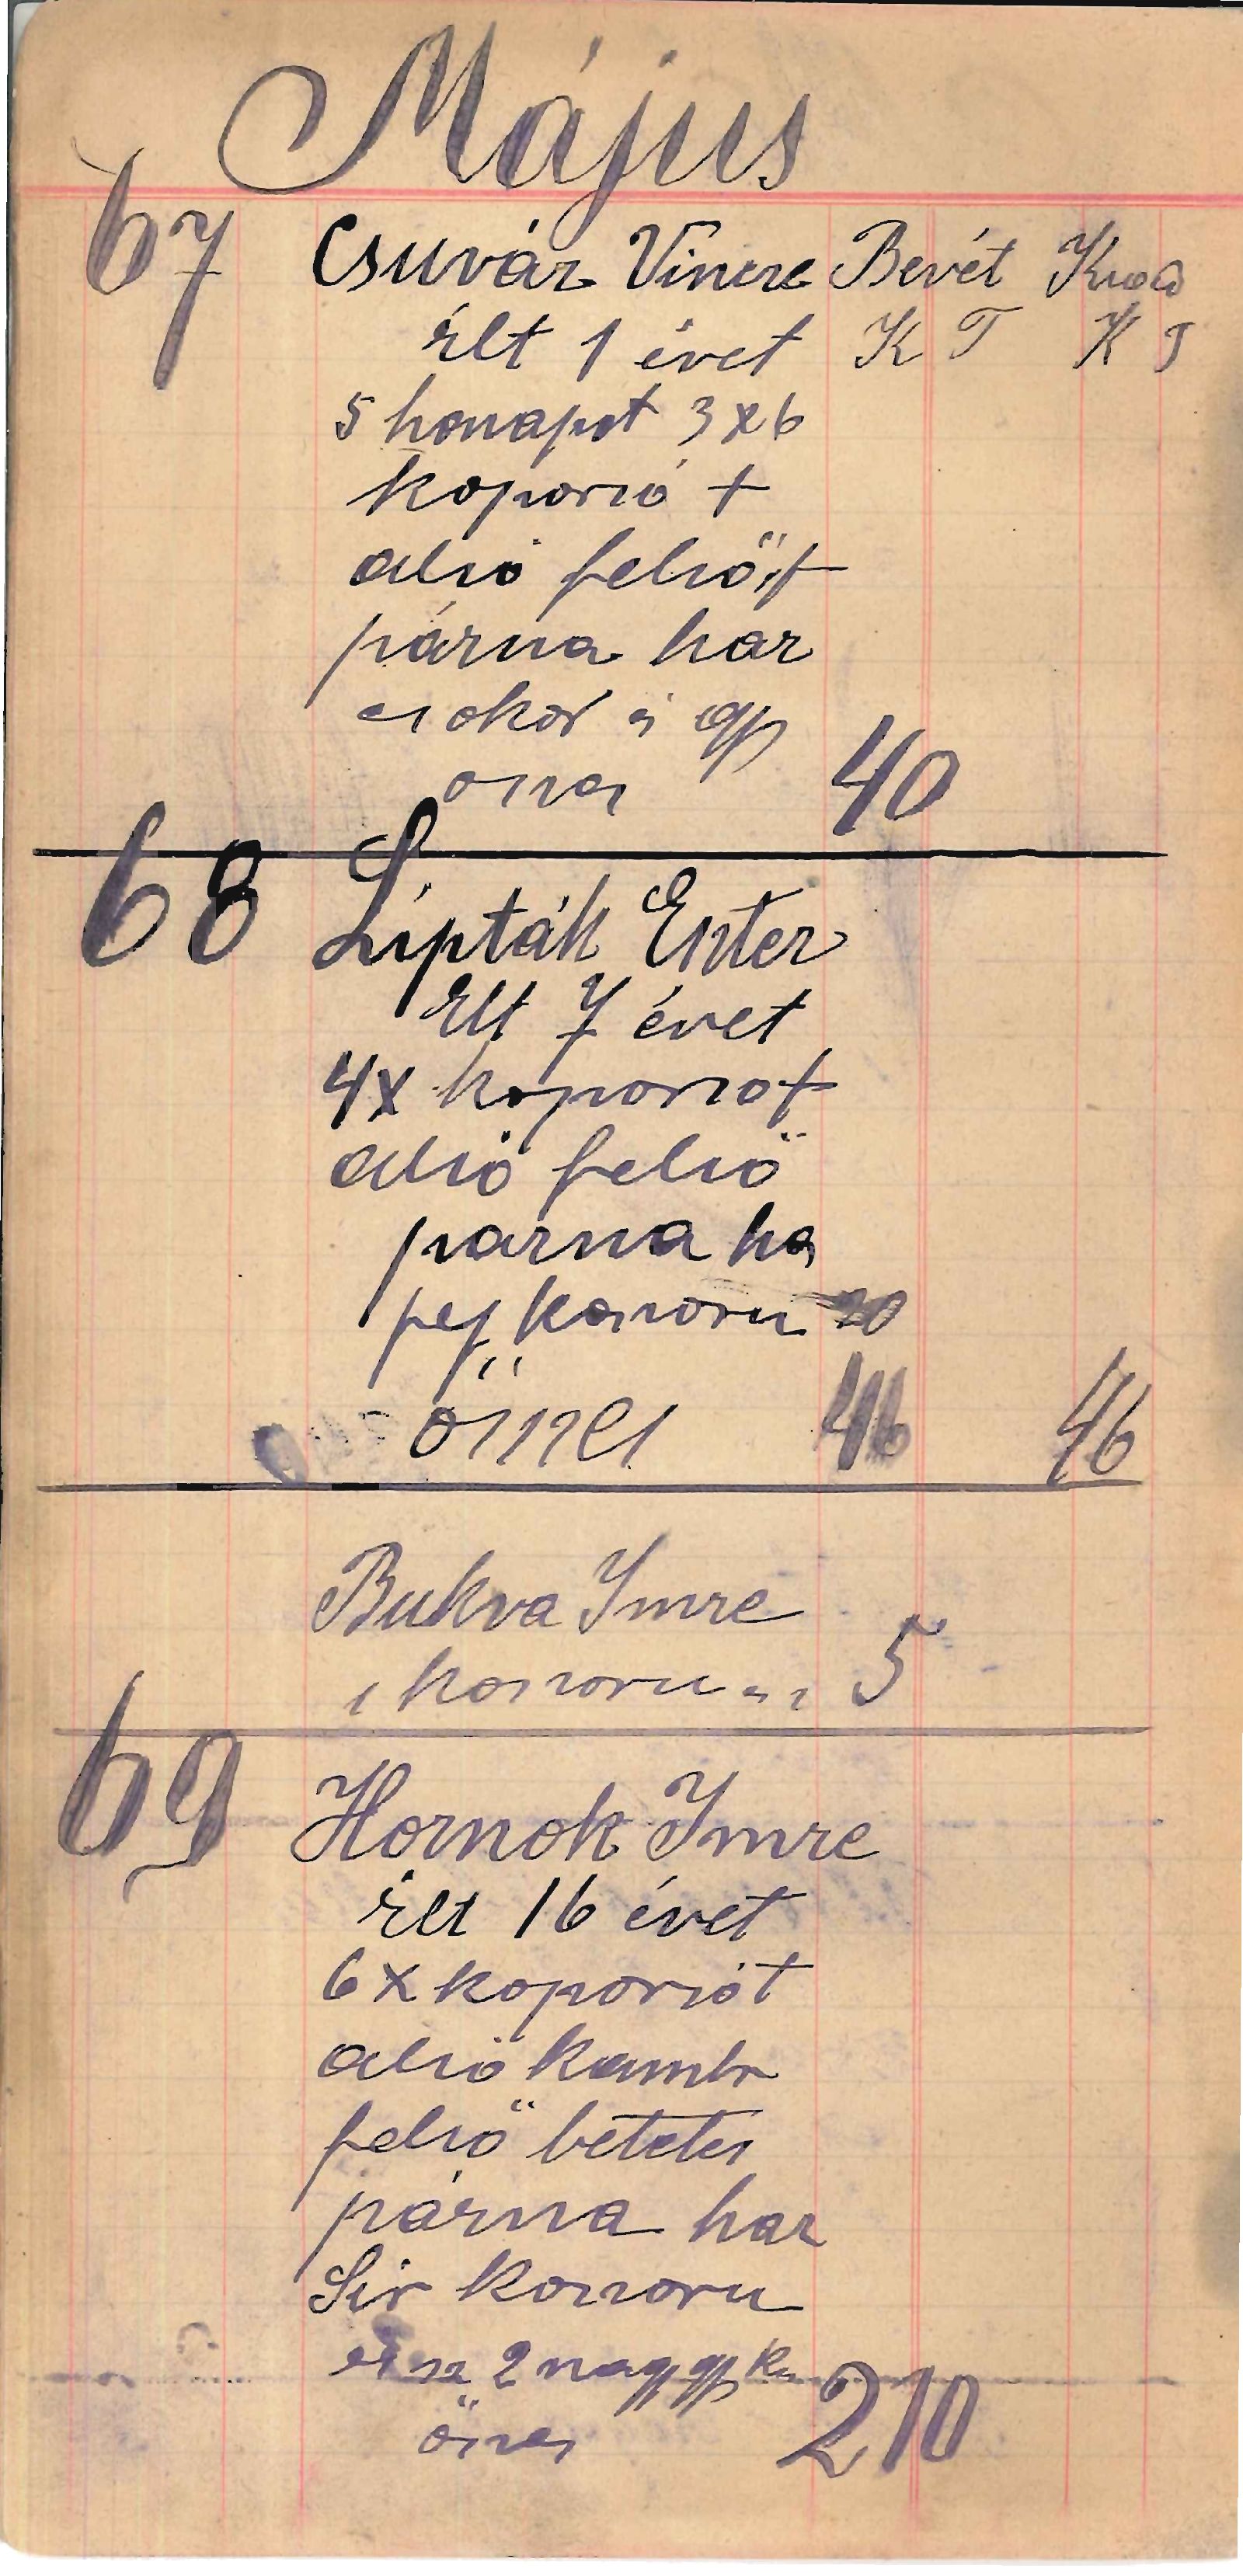 Május
67 Csuvár Vincze Bevét Kiad
élt 1 évet K F K F
5 honapot 3x6
koporsó t
alsó felsőt
párna haz
csokor is gyp
össes 40
68 Lipták Eszter
Elt 7 évet
4x koporsot
alsó felsö
parna ha
fej koszoru 20
összes 46 46
Bukva Imre
1 koszoru 5
69 Hornok Imre
élt 16 évet
6x koporsót
alsó kamb
felsö betetes
párna haz
Sir koszoru
2 nagy gyp
össes 210